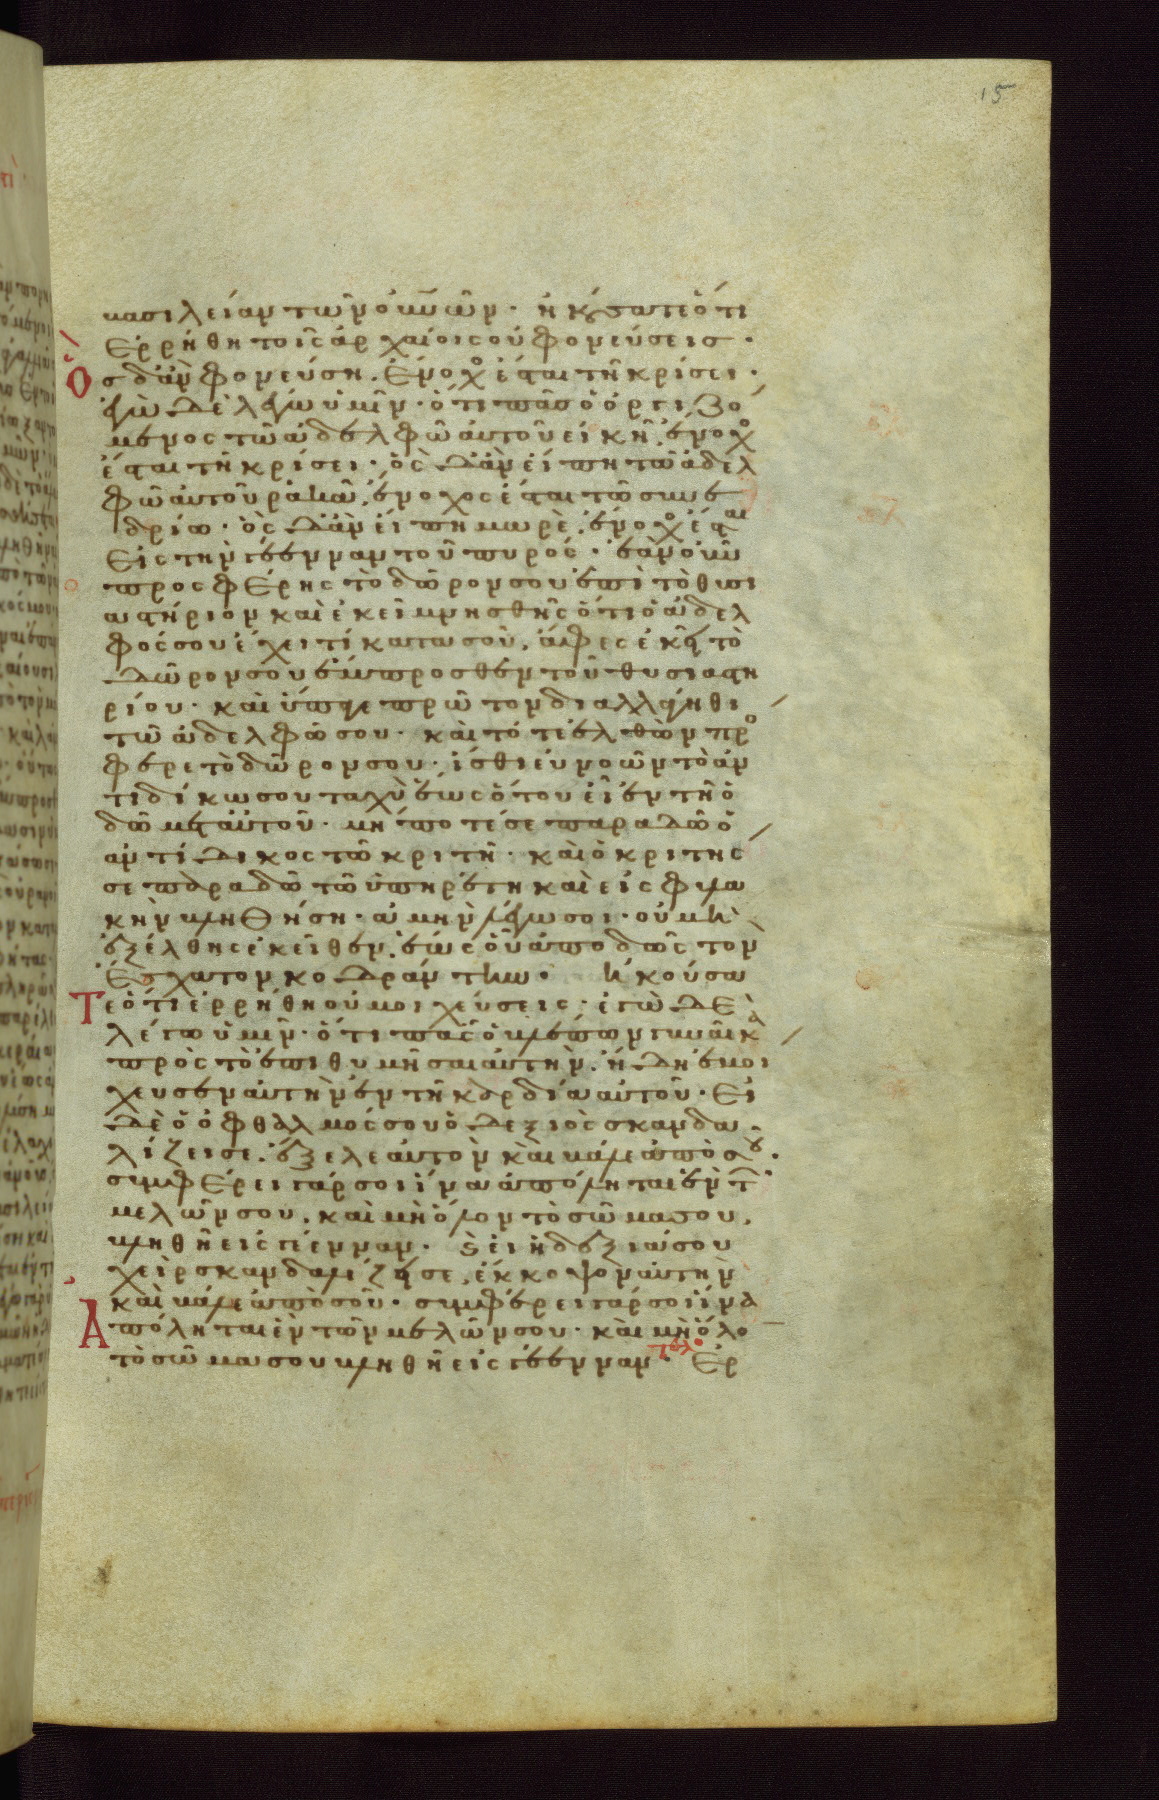 15
βασιλείαν τῶν οὐνῶν · ἠκούσατε ὅτι
ἐρρήθη τοῖς ἀρχαίοις οὐ φονεύσεισ ·
Ὃσ δἂν φονεύση . ἔνοχο ἔσται τῆ κρίσει ·
ἐγὼ δὲ λέγω ὑμῖν · ὅτι πᾶσ ὁ ὀργιζό
μενος τῶ ἀδελφῶ αὐτοῦ εἰκῆ, ἔνοχο
ἔσται τῆ κρίσει · ὃς δἂν εἴπη τῶ ἀδελ
φῶ αὐτοῦ ρακᾶ, ἔνοχος ἔσται τῶ συνε
δρίω · ὃς δἂν εἴπη μωρὲ, ἔνοχο ἔσται
εἰς τὴν γέενναν τοῦ πυρός · ἐὰν οὖν
προσφέρης τὸ δῶρον σου ἐπὶ τὸ θυσι
αστήριον καὶ ἐκεῖ μνησθῆς ὅτι ὁ ἀδελ
φός σου ἔχει τί κατα σοῦ, ἄφες ἐκεῖ τὸ
δῶρον σου ἔμπροσθεν τοῦ θυσιαστη
ρίου · καὶ ὕπαγε πρῶτον διαλλάγηθι
τῶ ἀδελφῶ σου · καὶ τότε ἐλθὼν προ
φερε τὸ δῶρον σου · ἴσθι εὐνοῶν τὸ ἀν
τιδίκω σου ταχὺ ἕως ὅτου εἶ ἐν τῆ ὁ
δῶ μετ αὐτοῦ · μήποτέ σε παραδῶ ὁ
ἀντίδικος τῶ κριτῆ · καὶ ὁ κριτής
σε παραδῶ τῶ ὑπηρέτη καὶ εἰς φυλα
κὴν βληθήση · ἀμὴν λέγω σοι · οὐ μὴ
ἐξέλθης ἐκεῖθεν, ἕως οὗ ἀποδῶς τον
ἔσχατον κοδράντην · ἠκούσα
Τε ὅτι ἐρρήθη οὐ μοιχεύσεις · ἐγὼ δὲ
λέγω ὑμῖν · ὅτι πᾶς ὁ βλέπων γυναῖκα
πρὸς τὸ ἐπιθυμῆσαι αὐτὴν, ἤδη ἐμοί
χευσεν αὐτὴν ἐν τῆ καρδία αὐτοῦ · εἰ
δὲ ὁ ὀφθαλμός σου ὁ δεξιὸς σκανδα
λίζει σε, ἔξελε αὐτὸν καὶ βάλε ἀπὸ σου ·
συμφέρει γάρ σοι ἵνα ἀπόληται ἓν τῶν
μελῶν σου, καὶ μὴ ὅλον τὸ σῶμα σου,
βληθῆ εἰς γέενναν · καὶ εἰ ἡ δεξιά σου
χεὶρ σκανδαλίζει σε, ἔκκοψον αὐτὴν
καὶ βάλε ἀπὸ σοῦ · συμφέρει γάρ σοι ἵνα
Ἀπόληται ἓν τῶν μελῶν σου · καὶ μὴ ὅλο
τὸ σῶμα σου βληθῆ εἰς γέενναν · τέλο ἐρ